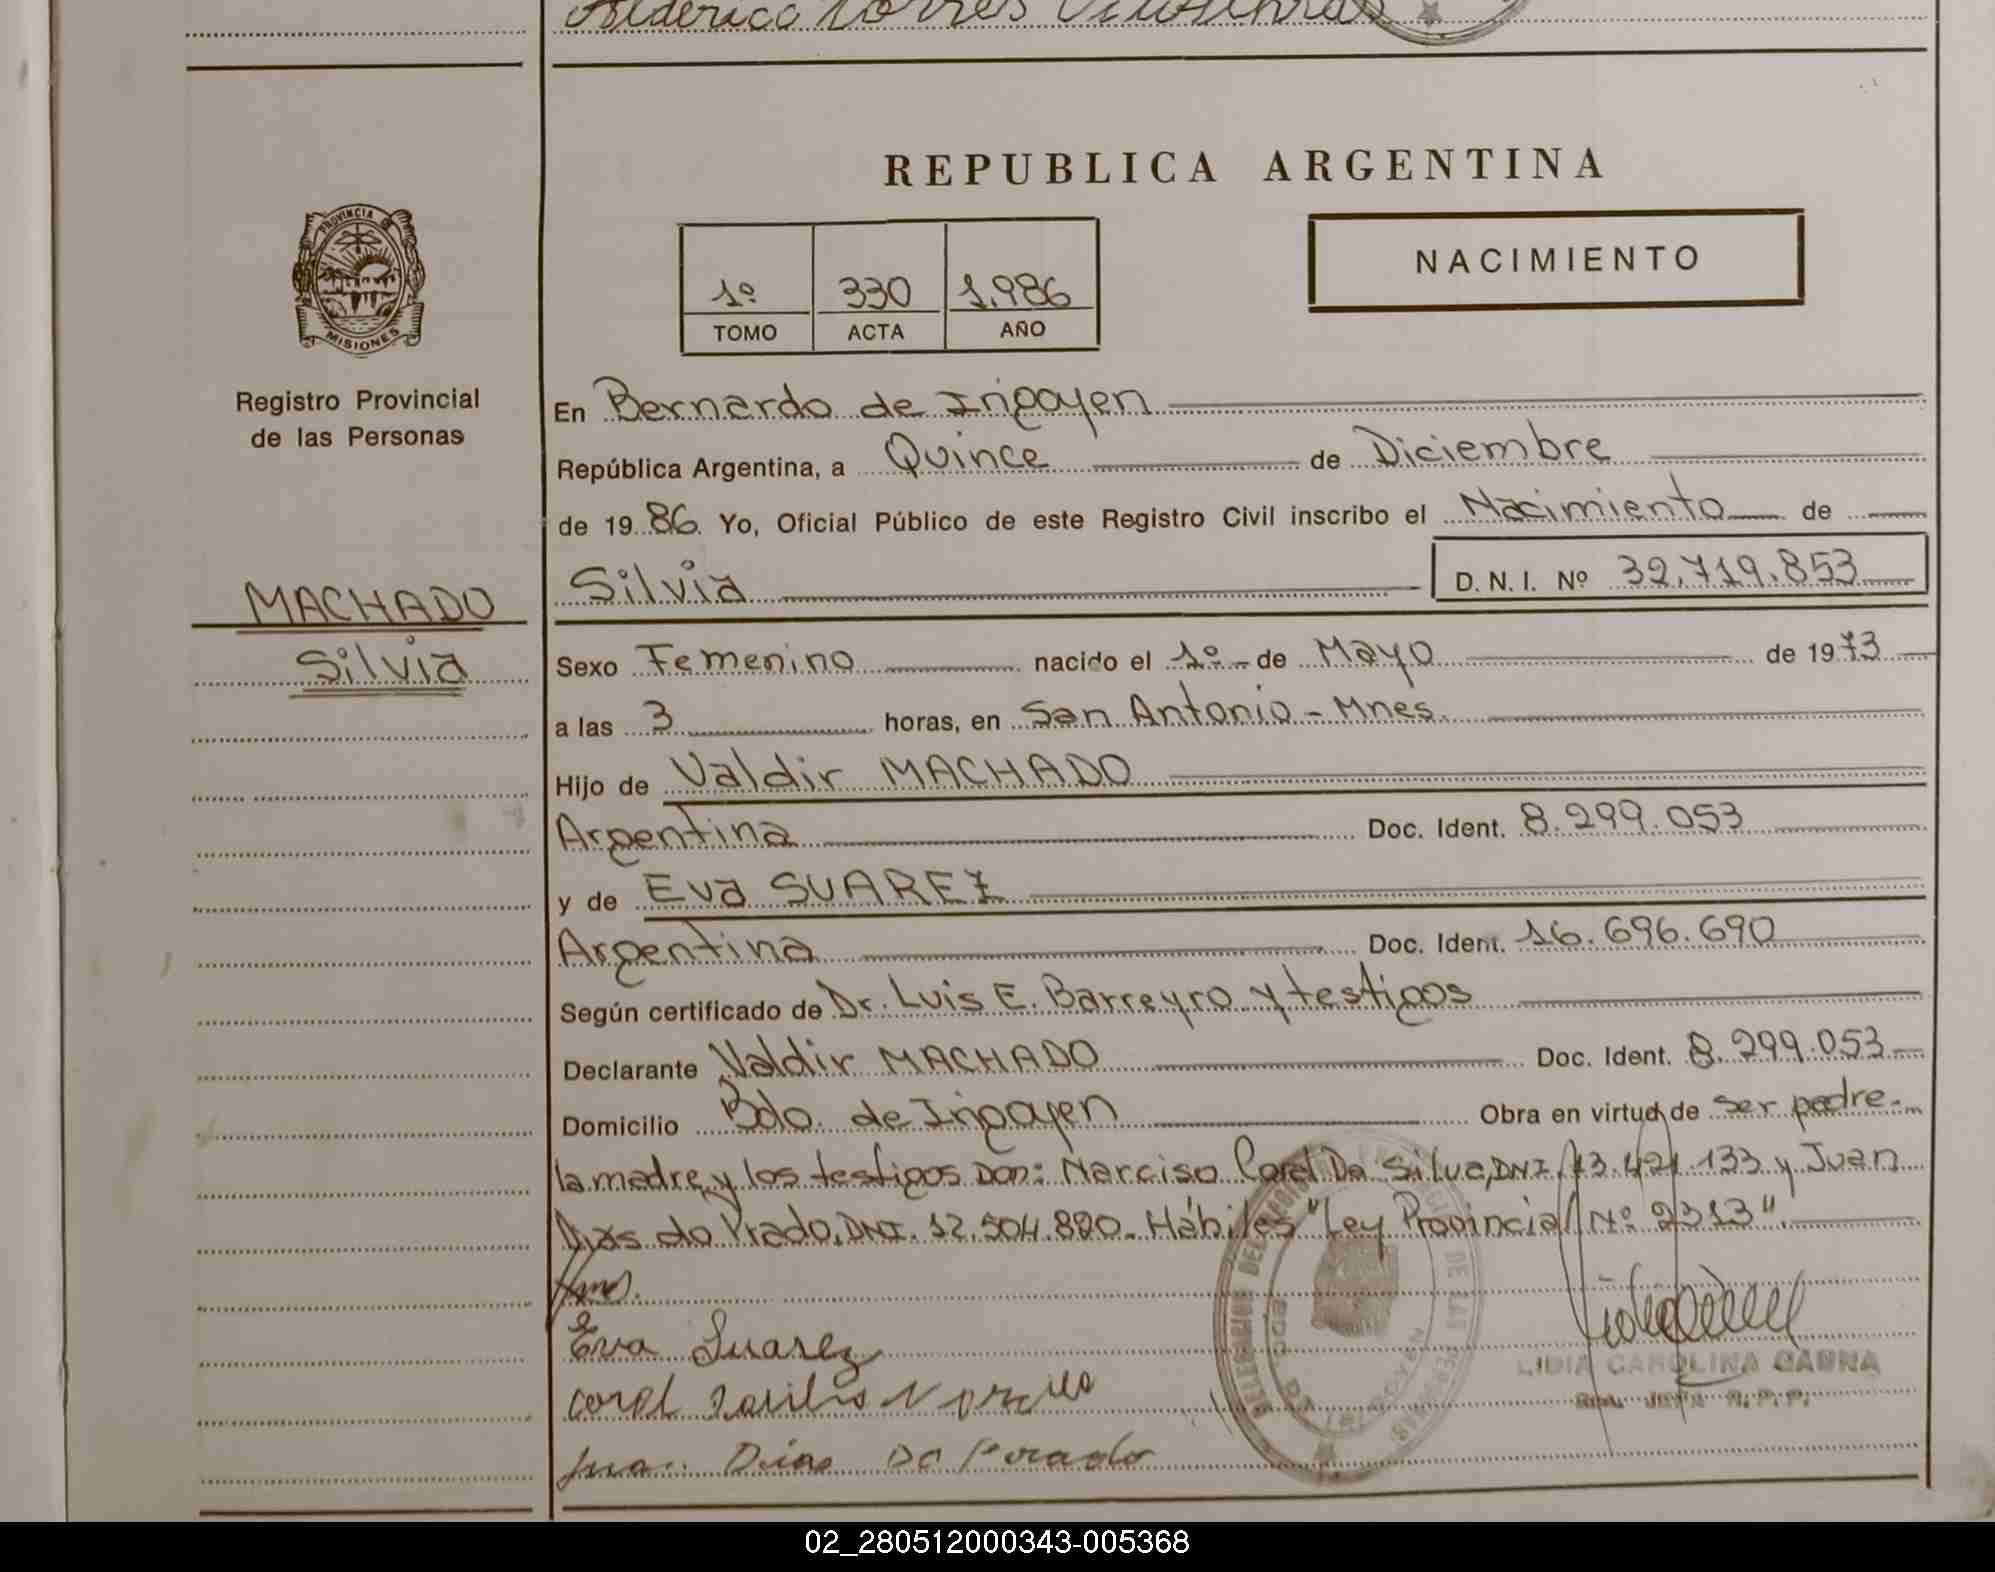 Torres
REPUBLICA ARGENTINA
PROVINCIA DE
MISIONES
1º 330 1.986
TOMO ACTA AÑO
NACIMIENTO
Registro Provincial
de las Personas
MACHADO
Silvia
En Bernardo de Irigoyen
República Argentina, a Quince de Diciembre
de 1986. Yo, Oficial Público de este Registro Civil inscribo el Nacimiento de
Silvia D. N. I. Nº 32.719.853
Sexo Femenino nacido el 1º de Mayo de 1973
a las 3 horas, en San Antonio - Mnes.
Hijo de Valdir MACHADO
Argentina Doc. Ident. 8.299.053
y de Eva SUAREZ
Argentina Doc. Ident. 16.696.690
Según certificado de Dr. Luis E. Barreyro y testigos
Declarante Valdir MACHADO Doc. Ident. 8.299.053
Domicilio Bdo. de Irigoyen Obra en virtud de ser padre.
la madre y los testigos Don: Narciso Corel Da Silva, DNI. 13.421.133 y Juan
Dias do Prado, DNI. 12.504.820. Hábiles "Ley Provincial Nº 2313".
Eva Suarez
Corel
Juan Dias Do Prado
LIDIA CAROLINA
R.P.P.
02_280512000343-005368